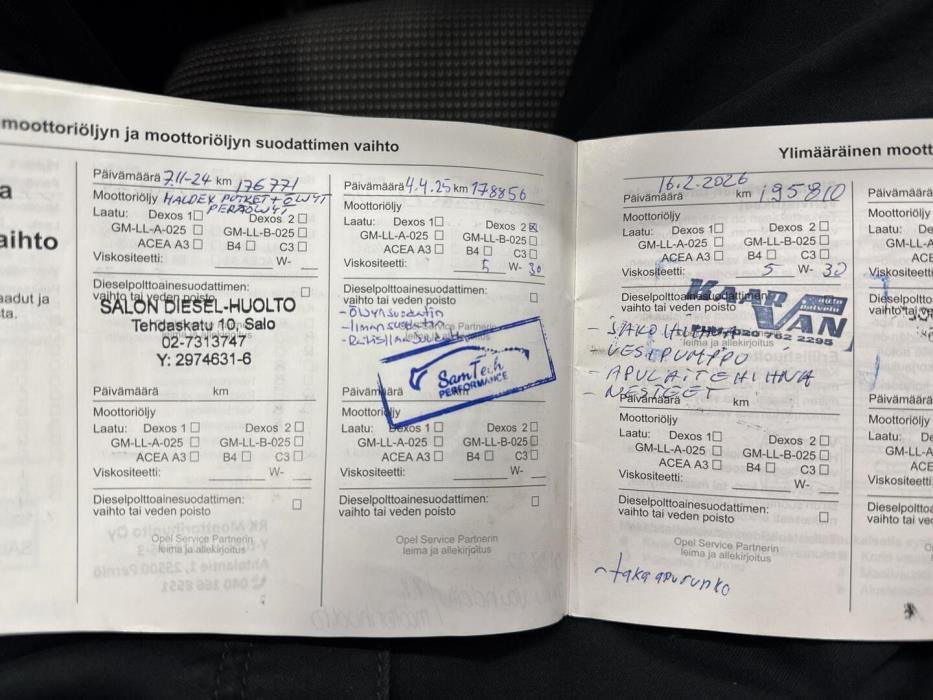 moottoriöljyn ja moottoriöljyn suodattimen vaihto
a
aihto
aadut ja
sta.
Päivämäärä 7.11-24 km 176771
Moottoriöljy HALDEX PUTKET + ÖLJYT
PERÄÖLJYT
Laatu: Dexos 1 Dexos 2
GM-LL-A-025 GM-LL-B-025
ACEA A3 B4 C3
Viskositeetti: W-
Dieselpolttoainesuodattimen:
vaihto tai veden poisto
SALON DIESEL-HUOLTO
Tehdaskatu 10, Salo
02-7313747
Y: 2974631-6
Päivämäärä km
Moottoriöljy
Laatu: Dexos 1 Dexos 2
GM-LL-A-025 GM-LL-B-025
ACEA A3 B4 C3
Viskositeetti: W-
Dieselpolttoainesuodattimen:
vaihto tai veden poisto
Opel Service Partnerin
leima ja allekirjoitus
Päivämäärä 4.4.25 km 178856
Moottoriöljy
Laatu: Dexos 1 Dexos 2
GM-LL-A-025 GM-LL-B-025
ACEA A3 B4 C3
Viskositeetti: 5 W- 30
Dieselpolttoainesuodattimen:
vaihto tai veden poisto
- Öljynsuodatin
- Ilmansuodatin
Opel Service Partnerin
SamTech
PERFORMANCE
Päivämäärä km
Moottoriöljy
Laatu: Dexos 1 Dexos 2
GM-LL-A-025 GM-LL-B-025
ACEA A3 B4 C3
Viskositeetti: W-
Dieselpolttoainesuodattimen:
vaihto tai veden poisto
Opel Service Partnerin
leima ja allekirjoitus
Ylimääräinen moott
16.2.2026
Päivämäärä km 195810
Moottoriöljy
Laatu: Dexos 1 Dexos 2
GM-LL-A-025 GM-LL-B-025
ACEA A3 B4 C3
Viskositeetti: 5 W- 30
Dieselpolttoainesuodattimen:
vaihto tai veden poisto
KAAR VAN
auto
palvelu
PUH. 020 762 2295
leima ja allekirjoitus
- JAKOHIHNA
- VESIPUMPPU
- APULAITEHIHNA
- NESTEET
Päivämäärä km
Moottoriöljy
Laatu: Dexos 1 Dexos 2
GM-LL-A-025 GM-LL-B-025
ACEA A3 B4 C3
Viskositeetti: W-
Dieselpolttoainesuodattimen:
vaihto tai veden poisto
Opel Service Partnerin
leima ja allekirjoitus
Päivämäärä
Moottoriöljy
Laatu: De
GM-LL-A
ACE
Viskositeetti:
Dieselpolttoa
Päivämäärä
Moottoriöljy
Laatu: De
GM-LL-A
ACE
Viskositeetti:
Dieselpolttoa
vaihto tai ve